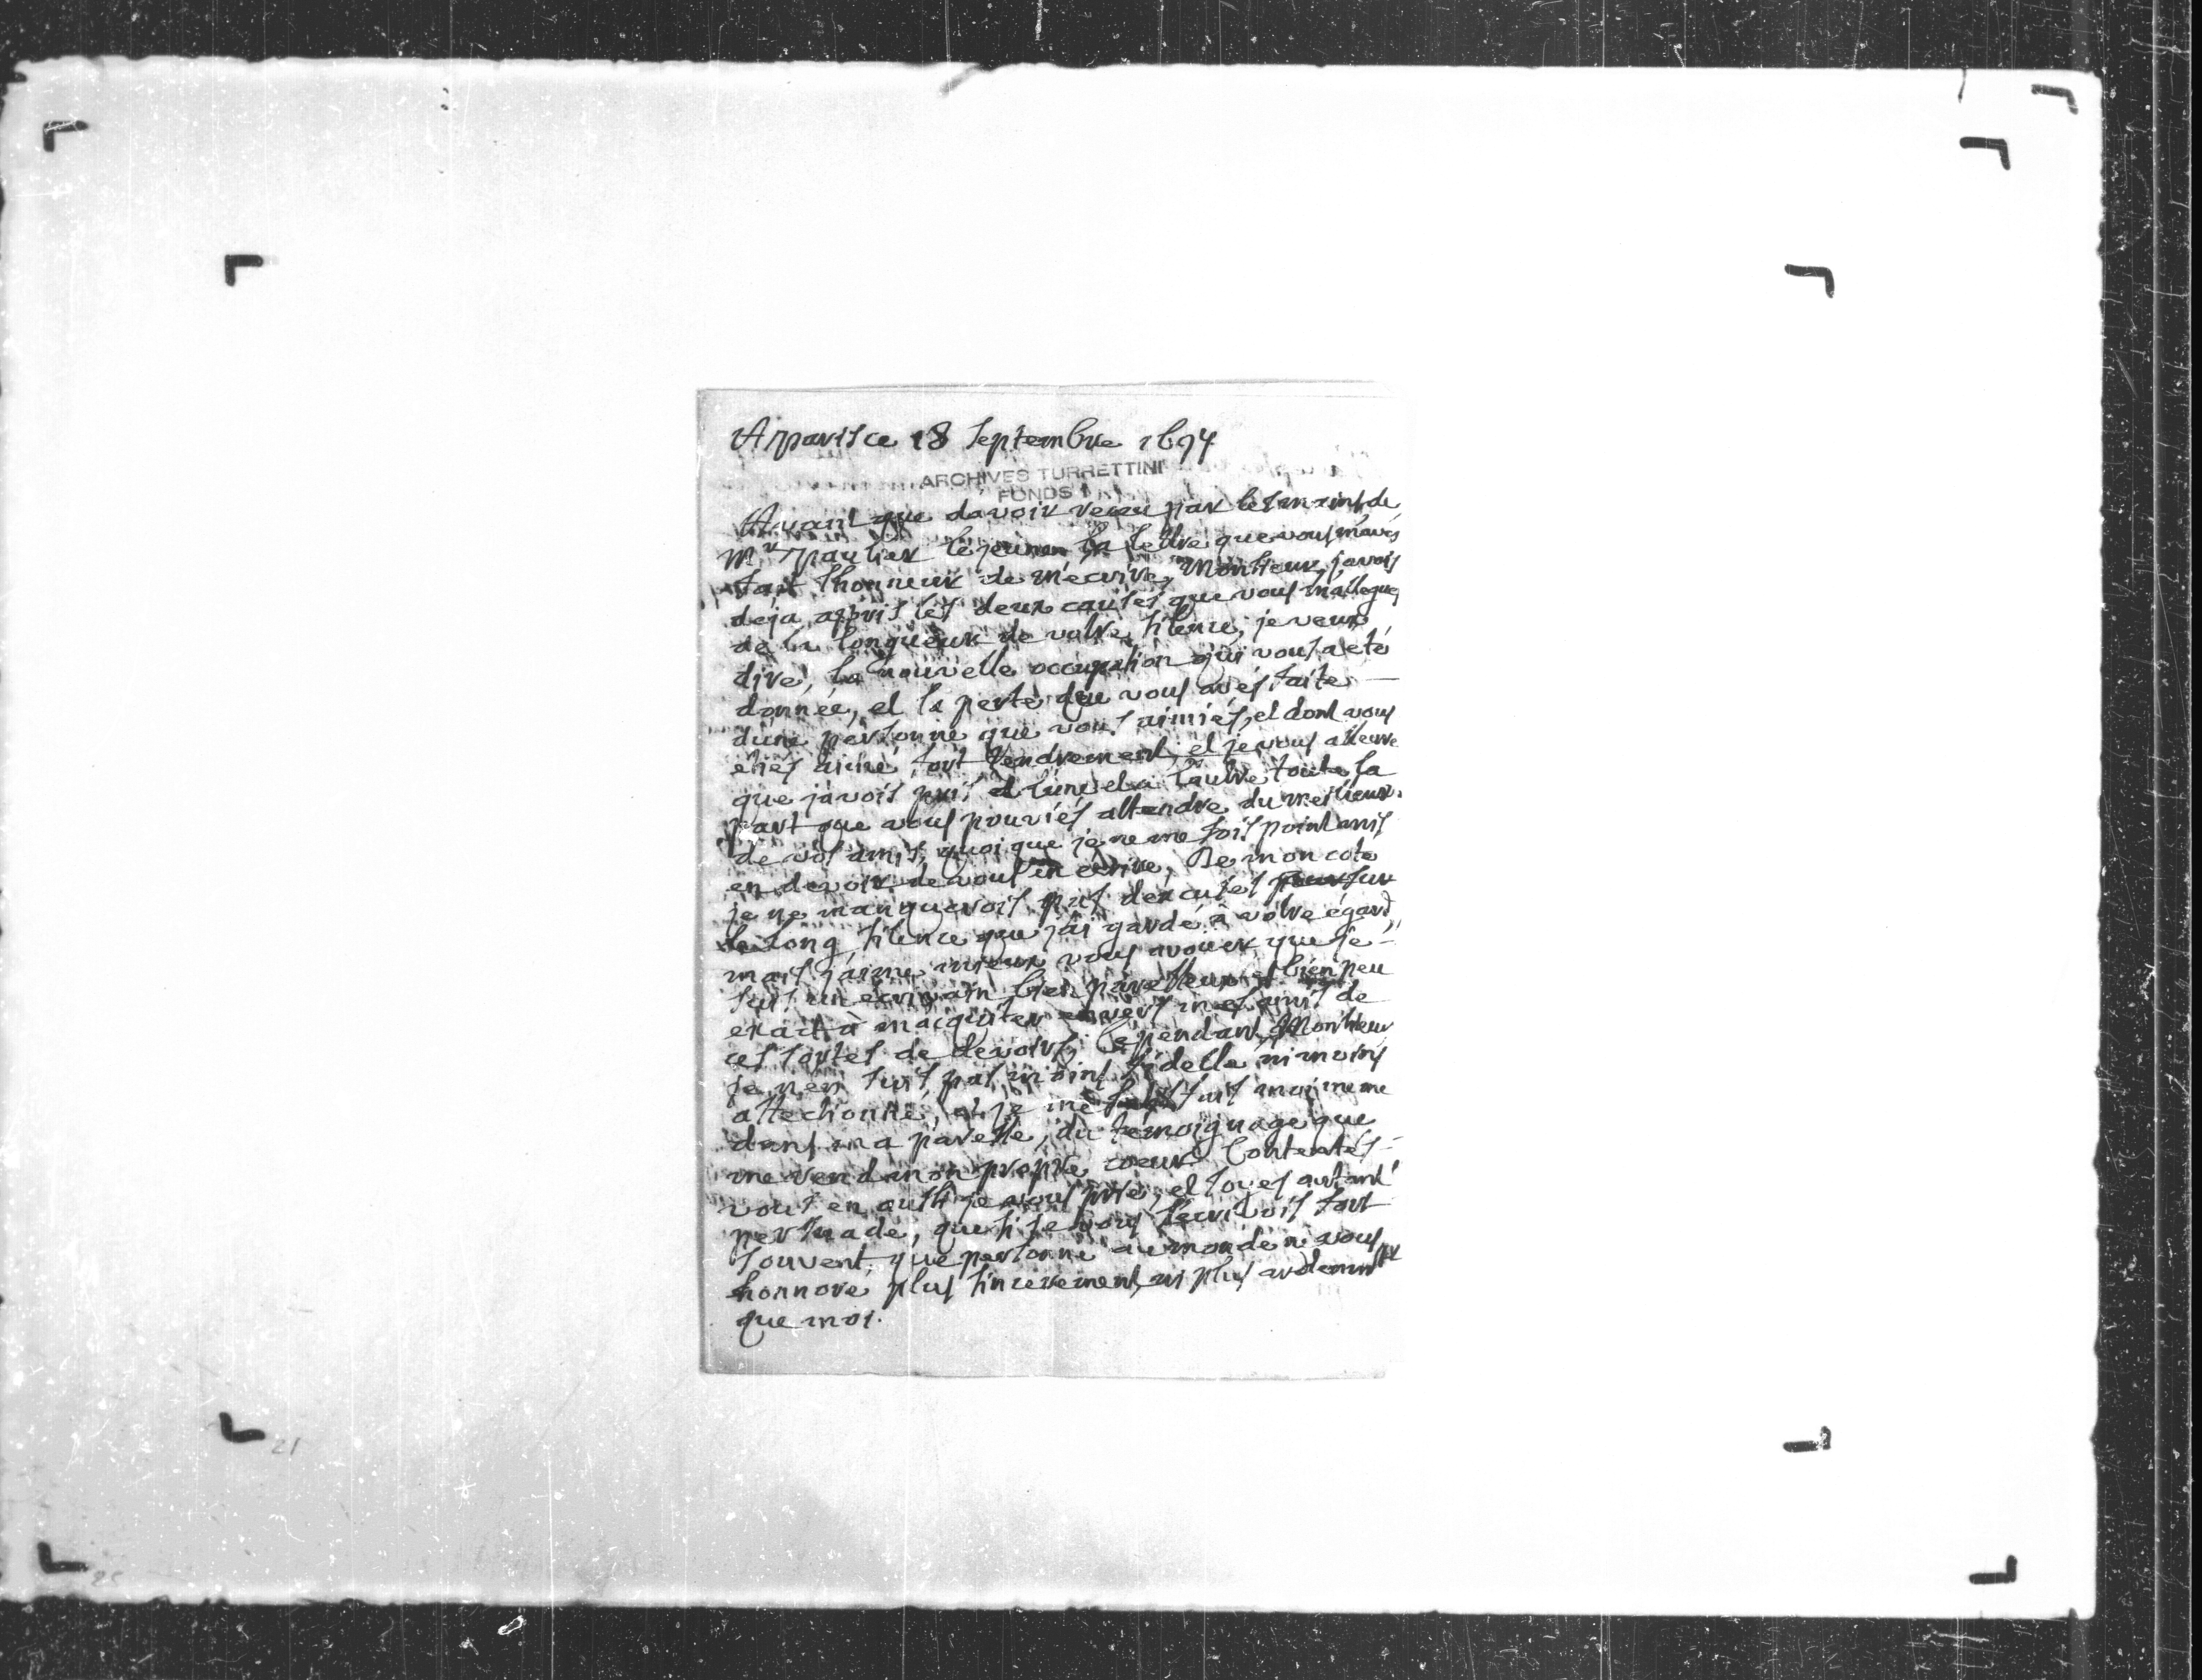 A paris ce 18 Septembre 1694
ARCHIVES TURRETTINI
FONDS 1
Avant que davoir receu par les mains de
Mr paulier le jeune la lettre que vous m'avés
fait lhonneur de m'ecrire, Monsieur, javois
deja appris les deux causes que vous m'allegués
de la longueur de votre silence, je veux
dire, la nouvelle occupation qui vous a eté
donnée, et la perte que vous avés faite
d'une personne que vous aimiés, et dont vous
etiés aimé fort tendrement, et je vous asseure
que j'avois pris et à l'une et a l'autre toute la
part que vous pouviés attendre du meilleur
de vos amis, quoi que je ne me sois point mis
en devoir de vous en ecrire, De mon coté
je ne manquerois pas d'excuses pour sur
le long silence que j'ai gardé à votre égard,
mais j'aime mieux vous avouer que je
suis un écrivain bien paresseux et bien peu
exact à m'acquiter envers mes amis de
ces sortes de devoirs, Cependant, Monsieur
je n'en suis pas moins fidelle ni moins
affectionné, et je me satisfais moi meme
dans ma paresse, du témoignage que
me rend mon propre coeur Contentés
vous en aussi je vous prie, et soyes autant
persuadé, que si je vous l'ecrivois fort
souvent, que personne au monde ne vous
honnore plus sincerement, ni plus ardemment
que moi.
21
25